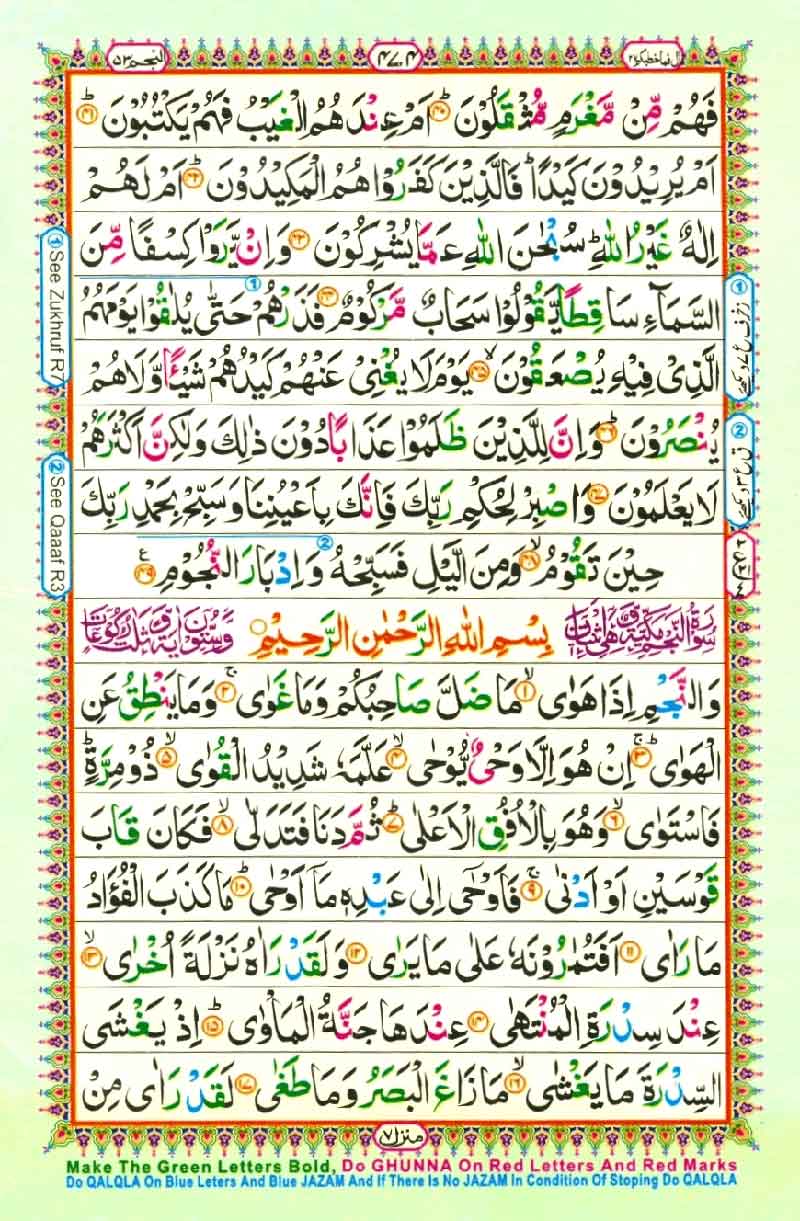 النجم ٥٣
٤٧٤
قال فما خطبكم ٢٧
فَهُمْ مِّنْ مَّغْرَمٍ مُّثْقَلُوْنَ ﴿٤٠﴾ اَمْ عِنْدَهُمُ الْغَيْبُ فَهُمْ يَكْتُبُوْنَ ﴿٤١﴾
اَمْ يُرِيْدُوْنَ كَيْدًا ؕ فَالَّذِيْنَ كَفَرُوْا هُمُ الْمَكِيْدُوْنَ ﴿٤٢﴾ اَمْ لَهُمْ
اِلٰهٌ غَيْرُ اللّٰهِ ؕ سُبْحٰنَ اللّٰهِ عَمَّا يُشْرِكُوْنَ ﴿٤٣﴾ وَاِنْ يَّرَوْا كِسْفًا مِّنَ
السَّمَآءِ سَاقِطًا يَّقُوْلُوْا سَحَابٌ مَّرْكُوْمٌ ﴿٤٤﴾ فَذَرْهُمْ حَتّٰى يُلٰقُوْا يَوْمَهُمُ
الَّذِىْ فِيْهِ يُصْعَقُوْنَ ﴿٤٥﴾ يَوْمَ لَا يُغْنِىْ عَنْهُمْ كَيْدُهُمْ شَيْـًٔا وَّلَا هُمْ
يُنْصَرُوْنَ ﴿٤٦﴾ وَاِنَّ لِلَّذِيْنَ ظَلَمُوْا عَذَابًا دُوْنَ ذٰلِكَ وَلٰكِنَّ اَكْثَرَهُمْ
لَا يَعْلَمُوْنَ ﴿٤٧﴾ وَاصْبِرْ لِحُكْمِ رَبِّكَ فَاِنَّكَ بِاَعْيُنِنَا وَسَبِّحْ بِحَمْدِ رَبِّكَ
حِيْنَ تَقُوْمُ ﴿٤٨﴾ وَمِنَ الَّيْلِ فَسَبِّحْهُ وَاِدْبَارَ النُّجُوْمِ ﴿٤٩﴾
سورة النجم مكية وهي اثنتان
بِسْمِ اللّٰهِ الرَّحْمٰنِ الرَّحِيْمِ
وستون اية وثلث ركوعات
وَالنَّجْمِ اِذَا هَوٰى ﴿١﴾ مَا ضَلَّ صَاحِبُكُمْ وَمَا غَوٰى ﴿٢﴾ وَمَا يَنْطِقُ عَنِ
الْهَوٰى ﴿٣﴾ اِنْ هُوَ اِلَّا وَحْىٌ يُّوْحٰى ﴿٤﴾ عَلَّمَهٗ شَدِيْدُ الْقُوٰى ﴿٥﴾ ذُوْ مِرَّةٍ ؕ
فَاسْتَوٰى ﴿٦﴾ وَهُوَ بِالْاُفُقِ الْاَعْلٰى ﴿٧﴾ ثُمَّ دَنَا فَتَدَلّٰى ﴿٨﴾ فَكَانَ قَابَ
قَوْسَيْنِ اَوْ اَدْنٰى ﴿٩﴾ فَاَوْحٰٓى اِلٰى عَبْدِهٖ مَآ اَوْحٰى ﴿١٠﴾ مَا كَذَبَ الْفُؤَادُ
مَا رَاٰى ﴿١١﴾ اَفَتُمٰرُوْنَهٗ عَلٰى مَا يَرٰى ﴿١٢﴾ وَلَقَدْ رَاٰهُ نَزْلَةً اُخْرٰى ﴿١٣﴾
عِنْدَ سِدْرَةِ الْمُنْتَهٰى ﴿١٤﴾ عِنْدَهَا جَنَّةُ الْمَاْوٰى ﴿١٥﴾ اِذْ يَغْشَى
السِّدْرَةَ مَا يَغْشٰى ﴿١٦﴾ مَا زَاغَ الْبَصَرُ وَمَا طَغٰى ﴿١٧﴾ لَقَدْ رَاٰى مِنْ
① See Zukhruf R7
② See Qaaaf R3
منزل ٧
Make The Green Letters Bold, Do GHUNNA On Red Letters And Red Marks
Do QALQLA On Blue Leters And Blue JAZAM And If There Is No JAZAM In Condition Of Stoping Do QALQLA